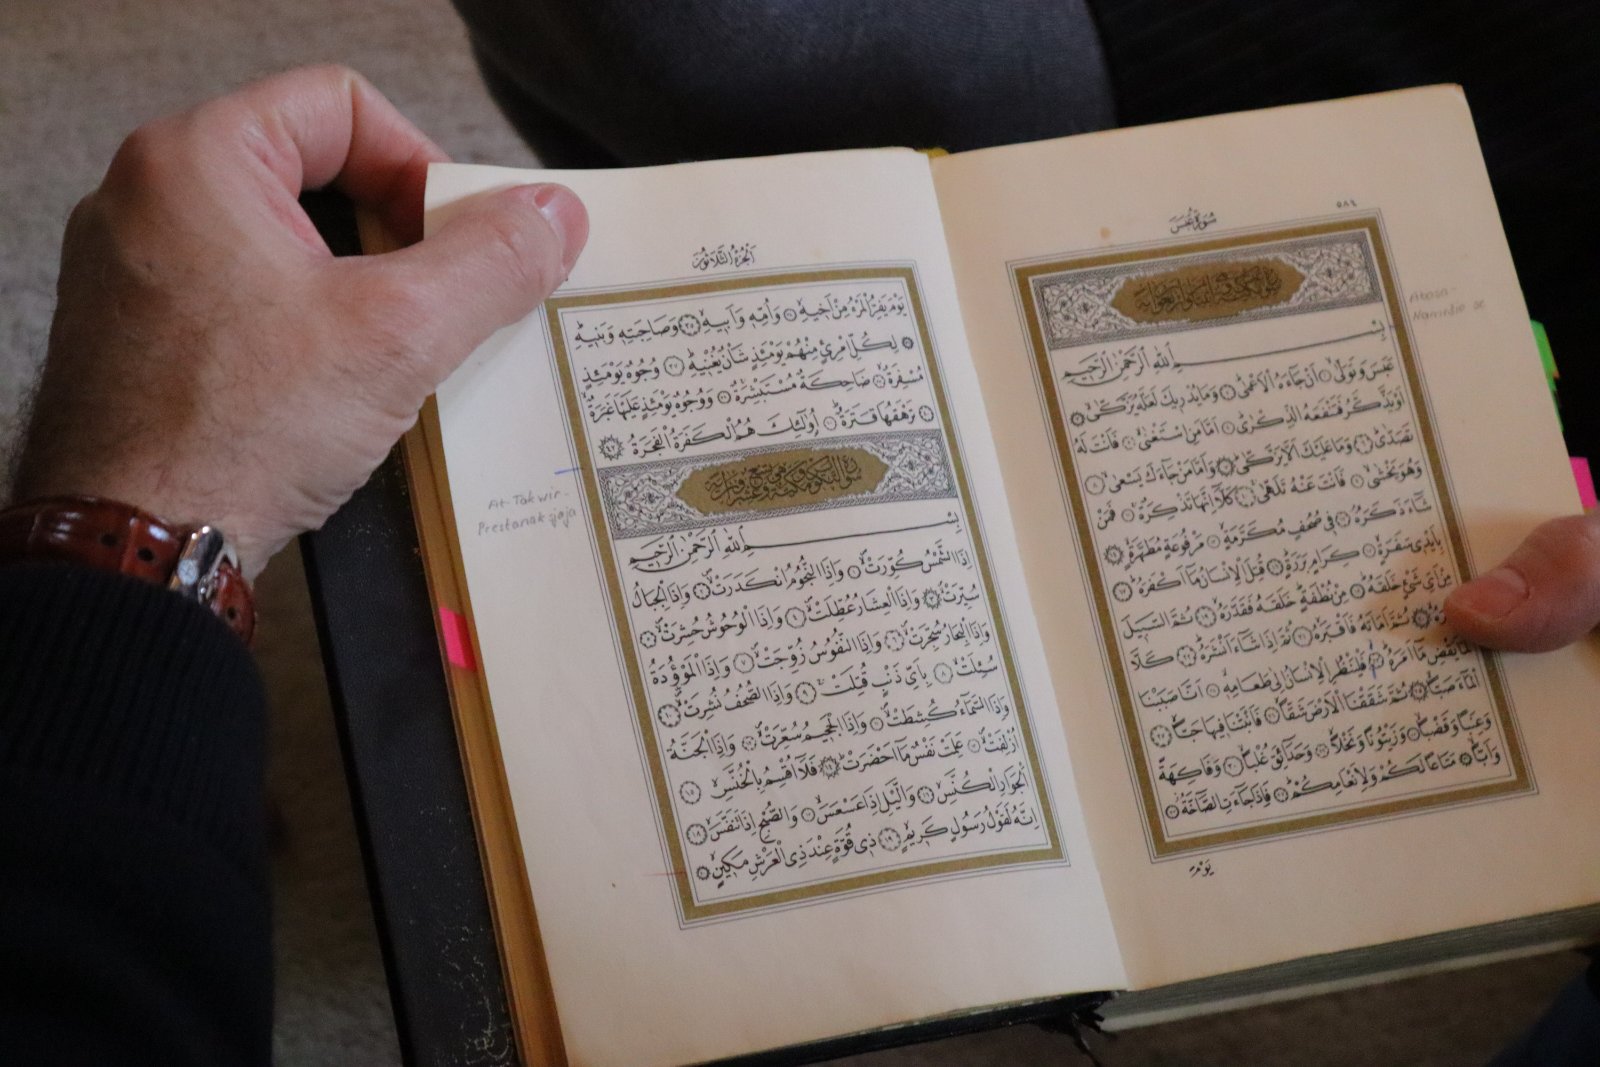 ٥٨٤
سُورَةُ عَبَسَ
بِسْمِ اللّٰهِ الرَّحْمٰنِ الرَّحِيمِ
عَبَسَ وَتَوَلّٰىۙ ١ اَنْ جَٓاءَهُ الْاَعْمٰىۜ ٢ وَمَا يُدْر۪يكَ لَعَلَّهُ يَزَّكّٰىۙ ٣
اَوْ يَذَّكَّرُ فَتَنْفَعَهُ الذِّكْرٰىۜ ٤ اَمَّا مَنِ اسْتَغْنٰىۙ ٥ فَاَنْتَ لَهُ
تَصَدّٰىۜ ٦ وَمَا عَلَيْكَ اَلَّا يَزَّكّٰىۜ ٧ وَاَمَّا مَنْ جَٓاءَكَ يَسْعٰىۙ ٨
وَهُوَ يَخْشٰىۙ ٩ فَاَنْتَ عَنْهُ تَلَهّٰىۚ ١٠ كَلَّٓا اِنَّهَا تَذْكِرَةٌۚ ١١ فَمَنْ
شَٓاءَ ذَكَرَهُۢ ١٢ ف۪ي صُحُفٍ مُكَرَّمَةٍۙ ١٣ مَرْفُوعَةٍ مُطَهَّرَةٍۙ ١٤
بِاَيْد۪ي سَفَرَةٍۙ ١٥ كِرَامٍ بَرَرَةٍۜ ١٦ قُتِلَ الْاِنْسَانُ مَٓا اَكْفَرَهُۜ ١٧
مِنْ اَيِّ شَيْءٍ خَلَقَهُۜ ١٨ مِنْ نُطْفَةٍۜ خَلَقَهُ فَقَدَّرَهُۙ ١٩ ثُمَّ السَّبِيلَ
ثُمَّ اَمَاتَهُ فَاَقْبَرَهُۙ ٢١ ثُمَّ اِذَا شَٓاءَ اَنْشَرَهُۜ ٢٢ كَلَّا
لَمَّا يَقْضِ مَٓا اَمَرَهُۜ ٢٣ فَلْيَنْظُرِ الْاِنْسَانُ اِلٰى طَعَامِه۪ۙ ٢٤ اَنَّا صَبَبْنَا
الْمَٓاءَ صَبًّاۙ ٢٥ ثُمَّ شَقَقْنَا الْاَرْضَ شَقًّاۙ ٢٦ فَاَنْبَتْنَا ف۪يهَا حَبًّاۙ ٢٧
وَعِنَبًا وَقَضْبًاۙ ٢٨ وَزَيْتُونًا وَنَخْلًاۙ ٢٩ وَحَدَٓائِقَ غُلْبًاۙ ٣٠ وَفَاكِهَةً
وَاَبًّاۙ ٣١ مَتَاعًا لَكُمْ وَلِاَنْعَامِكُمْۜ ٣٢ فَاِذَا جَٓاءَتِ الصَّٓاخَّةُۘ ٣٣
يَوْمَ
Abasa -
Namrštio se
اَلْجُزْءُ الثَّلَاثُونَ
يَوْمَ يَفِرُّ الْمَرْءُ مِنْ اَخ۪يهِۙ ٣٤ وَاُمِّه۪ وَاَب۪يهِۙ ٣٥ وَصَاحِبَتِه۪ وَبَن۪يهِۜ
٣٦ لِكُلِّ امْرِئٍ مِنْهُمْ يَوْمَئِذٍ شَأْنٌ يُغْن۪يهِۜ ٣٧ وُجُوهٌ يَوْمَئِذٍ
مُسْفِرَةٌۙ ٣٨ ضَاحِكَةٌ مُسْتَبْشِرَةٌۚ ٣٩ وَوُجُوهٌ يَوْمَئِذٍ عَلَيْهَا غَبَرَةٌۙ
٤٠ تَرْهَقُهَا قَتَرَةٌۜ ٤١ اُو۬لٰٓئِكَ هُمُ الْكَفَرَةُ الْفَجَرَةُ ٤٢
بِسْمِ اللّٰهِ الرَّحْمٰنِ الرَّحِيمِ
اِذَا الشَّمْسُ كُوِّرَتْۙ ١ وَاِذَا النُّجُومُ انْكَدَرَتْۙ ٢ وَاِذَا الْجِبَالُ
سُيِّرَتْۙ ٣ وَاِذَا الْعِشَارُ عُطِّلَتْۙ ٤ وَاِذَا الْوُحُوشُ حُشِرَتْۙ ٥
وَاِذَا الْبِحَارُ سُجِّرَتْۙ ٦ وَاِذَا النُّفُوسُ زُوِّجَتْۙ ٧ وَاِذَا الْمَوْؤُ۫دَةُ
سُئِلَتْۙ ٨ بِاَيِّ ذَنْبٍ قُتِلَتْۚ ٩ وَاِذَا الصُّحُفُ نُشِرَتْۙ ١٠
وَاِذَا السَّمَٓاءُ كُشِطَتْۙ ١١ وَاِذَا الْجَح۪يمُ سُعِّرَتْۙ ١٢ وَاِذَا الْجَنَّةُ
اُزْلِفَتْۙ ١٣ عَلِمَتْ نَفْسٌ مَٓا اَحْضَرَتْۜ ١٤ فَلَٓا اُقْسِمُ بِالْخُنَّسِۙ ١٥
اَلْجَوَارِ الْكُنَّسِۙ ١٦ وَالَّيْلِ اِذَا عَسْعَسَۙ ١٧ وَالصُّبْحِ اِذَا تَنَفَّسَۙ ١٨
اِنَّهُ لَقَوْلُ رَسُولٍ كَر۪يمٍۙ ١٩ ذ۪ي قُوَّةٍ عِنْدَ ذِي الْعَرْشِ مَك۪ينٍۙ ٢٠
At-Takwir -
Prestanak sjaja